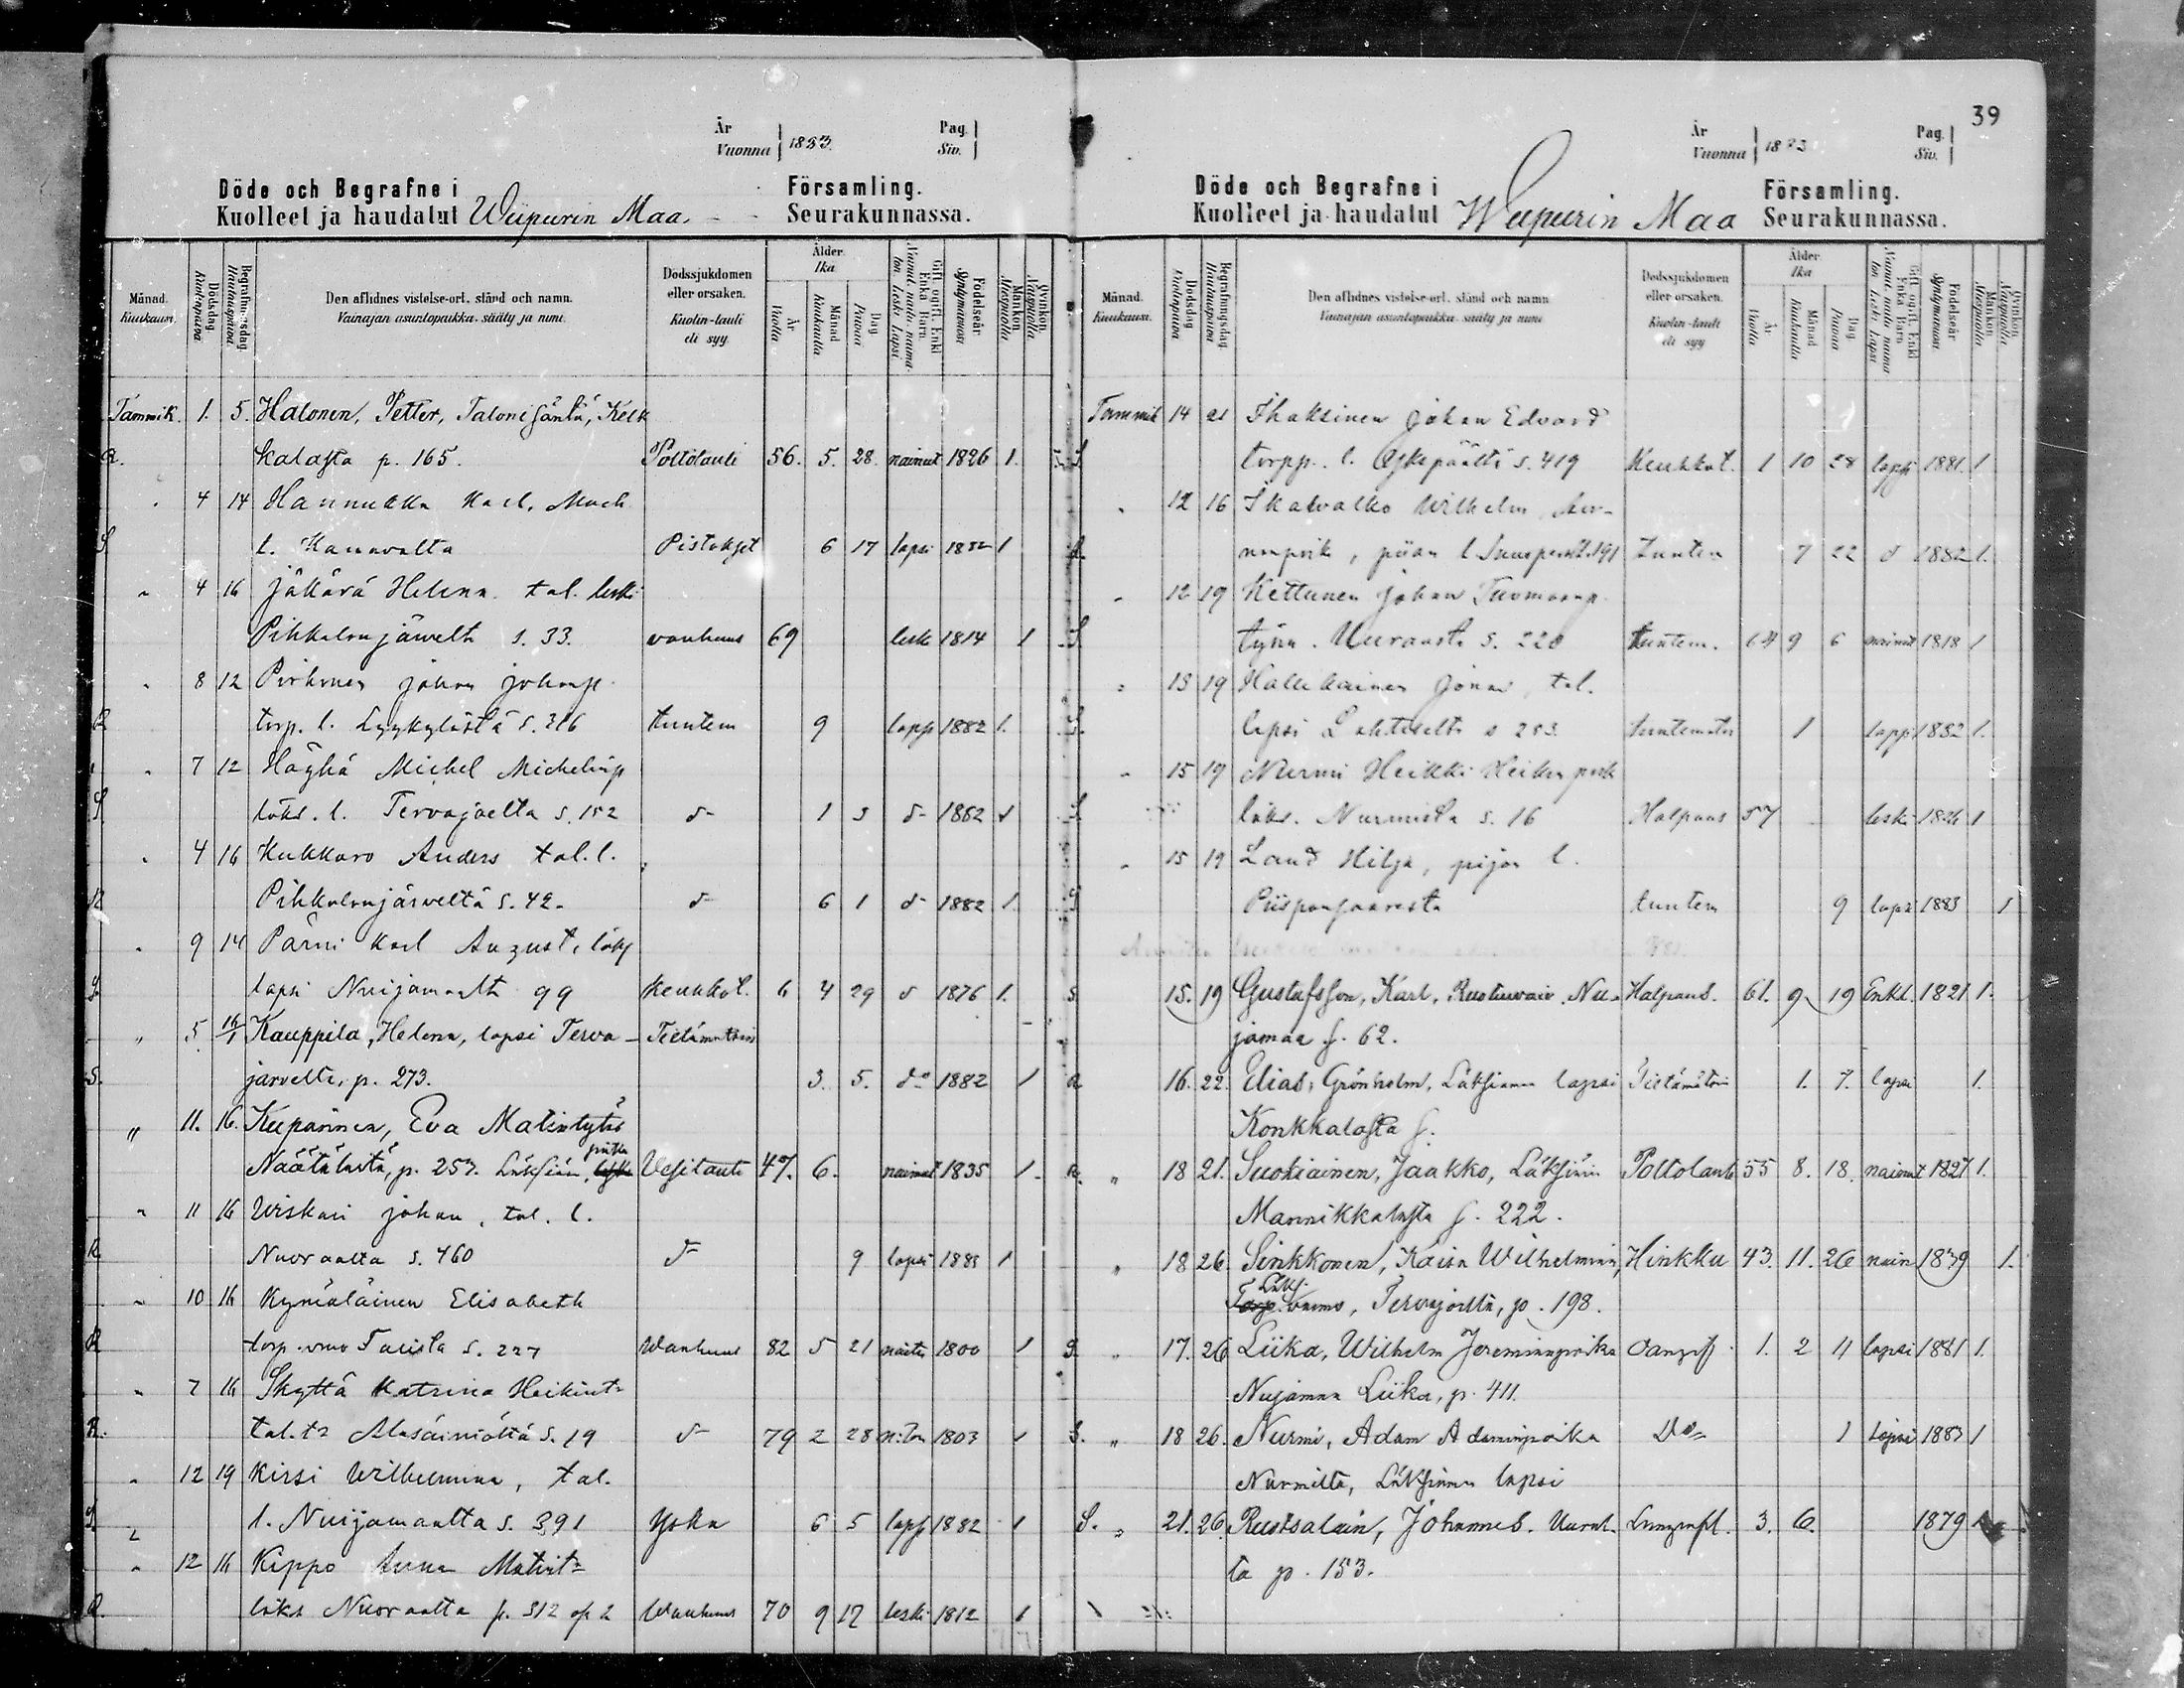 År
Vuonna 1883.
Pag.
Siv.
Döde och Begrafne i Församling.
Kuolleet ja haudatut Wiipurin Maa. Seurakunnassa.
Månad. Kuukausi.
Dödsdag Kuolinpäivä
Begrafningsdag. Hautauspäivä
Den aflidnes vistelse-ort, stånd och namn.
Vainajan asuntopaikka, sääty ja nimi.
Dödssjukdomen eller orsaken.
Kuolin-tauti eli syy.
Ålder Ikä
År Vuotta
Månad Kuukautta
Dag Päivää
Gift, ogift, Enkl. Enka, Barn.
Födelseår Syntymävuosi
Mankön. Miespuolia
Qvinkön. Naispuolia
Tammik. 1. 5. Halonen, Petter, Talonisäntä, Kelk
R. kalasta p. 165. Polttotauti 56. 5. 28. nainut 1826 1.
4 14 Hannukka Karl, Mach
S l. Kanavalta Pistokset 6 17 lapsi 1882 1
4 16 Jäkärä Helena tal. leski
Pihkalanjärvelt s. 33. vanhuus 69 lesk 1814 1
8 12 Pirhonen Johan Johansp.
R torp. l. Lyykylästä s. 316 tuntem 9 laps 1882 1.
7 12 Höyhä Michel Michelinp
S. läks. l. Tervajoelta s. 152 d- 1 3 d- 1882 1
4 16 Kukkaro Anders tal. l.
R Pihkalanjärveltä s. 42. d- 6 1 d- 1882 1
9 14 Pärni Karl August, läks
S. lapsi Nuijamaalt 99 Keuhkot. 6 4 29 d 1876 1.
5 16/1 Kauppila, Helena, lapsi Terva- Tietämätöin
S. järveltä, p. 273. 3. 5. do 1882 1
11. 16. Keponen, Eva Matintytär
Näätälästä, p. 253. Läksiän Vesitauti 47. 6. nainut 1835 1.
11 16 Wiskari Johan, tal. l.
R Nuoraalta s. 460 d- 9 lapsi 1883 1
10 16 Kymäläinen Elisabeth
R torp. vmo Talista s. 227 Wanhuus 82 5 21 1800 1
7 16 Skyttä Katrina Heikint:
R. tal. tr Alasäiniöltä s. 19 d- 79 2 28 n:ton 1803 1
12 19 Kirsi Wilhelmina, tal.
S. l. Nuijamaalta s. 391 Yskä 6 5 laps 1882 1
12 16 Kippo Anna Matint:
R. läks Nuoraalta p. 312 Wanhuus 70 9 17 leski 1812 1
39
År
Vuonna 1883
Pag.
Siv.
Döde och Begrafne i Församling.
Kuolleet ja haudatut Wiipurin Maa Seurakunnassa.
Månad. Kuukausi.
Dödsdag Kuolinpäivä
Begrafningsdag. Hautauspäivä
Den aflidnes vistelse-ort, stånd och namn
Vainajan asuntopaikka, sääty ja nimi
Dödssjukdomen eller orsaken.
Kuolin-tauti eli syy
Ålder Ikä
År Vuotta
Månad Kuukautta
Dag Päivää
Gift, ogift, Enkl. Enka, Barn
Födelseår Syntymävuosi
Mankön Miespuolia
Qvinkön Naispuolia
Tammik 14 21 Ihaksinen Johan Edvard
S. torpp. l. s. 419 Keuhkot. 1 10 28 lapsi 1881. 1
12 16 Ikävalko Wilhelm
piian l. 191 Tuntem 7 22 d 1882 1.
12 19 Kettunen Johan Tuomaanp.
S. Uuraasta s. 220 tuntem. 64 9 6 nainut 1818 1
13 19 Hallikainen Jonas, tal.
S. lapsi Lahtiselt s 253 tuntematon 1 laps 1882 1.
15 19 Nurmi Heikki Heikin poik
S läks. Nurmista s. 16 Halpaus 57 leski 1826 1
15 19 Land Hilja, piijan l.
S Piispansaaresta tuntem 9 lapsi 1883 1
S 15. 19 Gustafsson, Karl, Ruotuvaiv. Nui- Halpaus. 61. 9 19 Enkl. 1821 1.
jamaa s. 62.
R 16. 22. Elias, Grönholm, Läksiämen lapsi Tietämätöin 1. 7. lapsi 1.
Konkkalasta s.
R. 18 21. Suokiainen, Jaakko, Läksiäin Polttotauti 55 8. 18. nainut 1827 1.
Mannikkalasta s. 222.
18 26. Sinkkonen, Kaisa Wilhelmina, Hinkku 43. 11. 26 nain 1839 1.
Läks. vaimo, Tervajoelta, p. 198.
S. 17. 26 Liika, Wilhelm Jereminpoika 1. 2 11 lapsi 1881 1.
Nujamaa Liika, p. 411.
S. 18 26. Nurmi, Adam Adaminpoika Do 1 lapsi 1883 1
Nurmilta, Läksiämen lapsi
S. 21. 26. Rustsalain, Johannes. Uural. Lungnfl. 3. 6. 1879 1
ta p. 153.